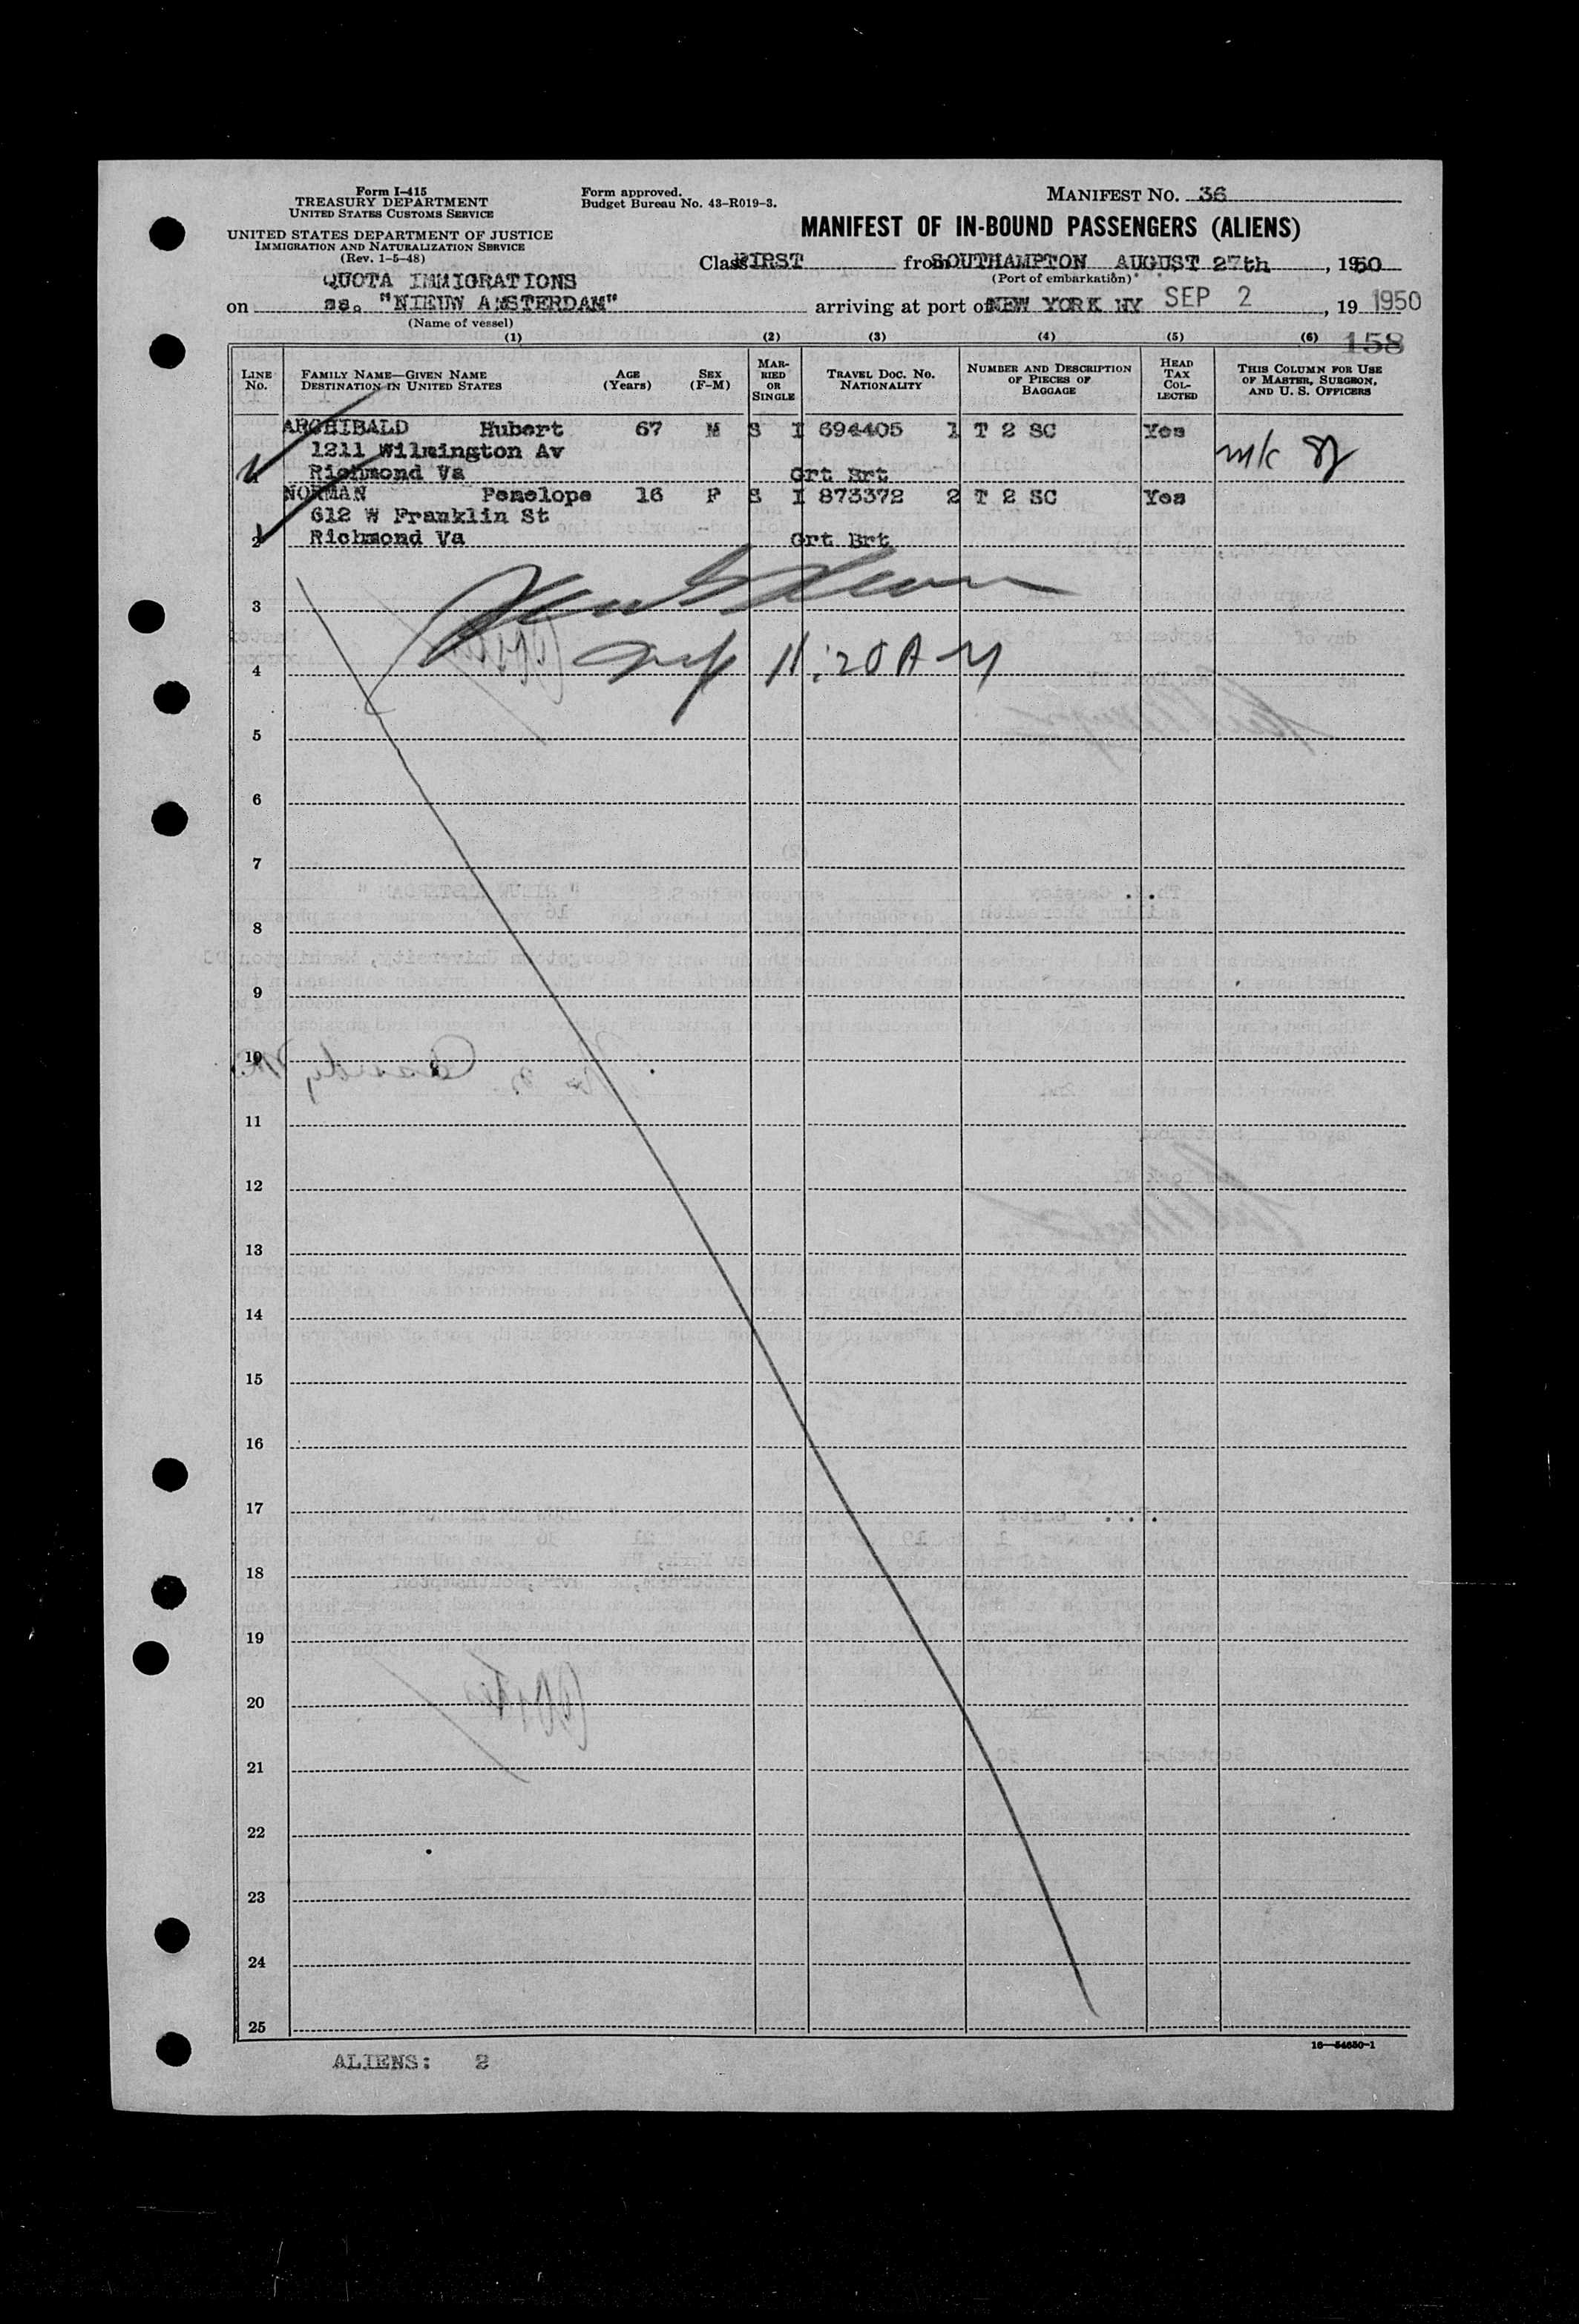 Form I-415
TREASURY DEPARTMENT
UNITED STATES CUSTOMS SERVICE
UNITED STATES DEPARTMENT OF JUSTICE
IMMIGRATION AND NATURALIZATION SERVICE
(Rev. 1-5-48)
Form approved.
Budget Bureau No. 43-R019-3.
MANIFEST NO. 36
MANIFEST OF IN-BOUND PASSENGERS (ALIENS)
Class FIRST from SOUTHAMPTON AUGUST 27th, 1950
(Port of embarkation)
QUOTA IMMIGRATIONS
on ss. "NIEUW AMSTERDAM" arriving at port of NEW YORK NY SEP 2, 19 1950
(Name of vessel)
(1) (2) (3) (4) (5) (6) 158
LINE No. FAMILY NAME—GIVEN NAME DESTINATION IN UNITED STATES AGE (Years) SEX (F-M) MARRIED OR SINGLE TRAVEL DOC. NO. NATIONALITY NUMBER AND DESCRIPTION OF PIECES OF BAGGAGE HEAD TAX COLLECTED THIS COLUMN FOR USE OF MASTER, SURGEON, AND U. S. OFFICERS
ARCHIBALD Hubert 67 M S I 694405 1 T 2 SC Yes
1211 Wilmington Av
1 Richmond Va Grt Brt
NORMAN Penelope 16 F S I 873372 2 T 2 SC Yes
612 W Franklin St
2 Richmond Va Grt Brt
3
4 11:20 AM
5
6
7
8
9
10
11
12
13
14
15
16
17
18
19
20
21
22
23
24
25
16—54650-1
ALIENS: 2